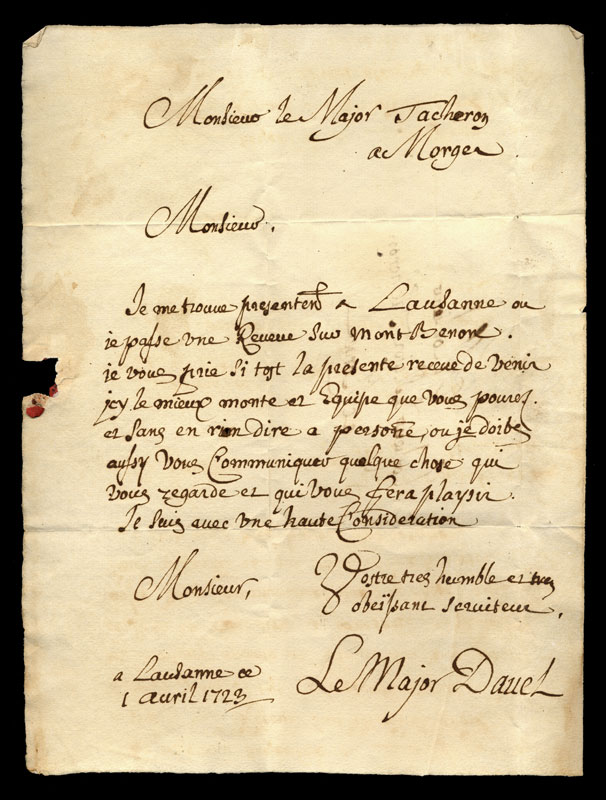 Monsieur le Major Tacheron
a Morges
Monsieur.
Je me trouve presentemt a Lausanne ou
je passe vne Reveue sur mont Benon.
je vous prie si tost la presente receue de venir
jcy le mieux monte et Equipe que vous pourez.
et sans en rien dire a personne, ou je doibs
aussy vous Communiquer quelque chose qui
vous regarde et qui vous fera playsir.
Je suis avec vne haute Consideration
Monsieur,
Vostre tres humble et tres
obeïssant seruiteur.
a Lausanne ce
1 avril 1723
Le Major Davel